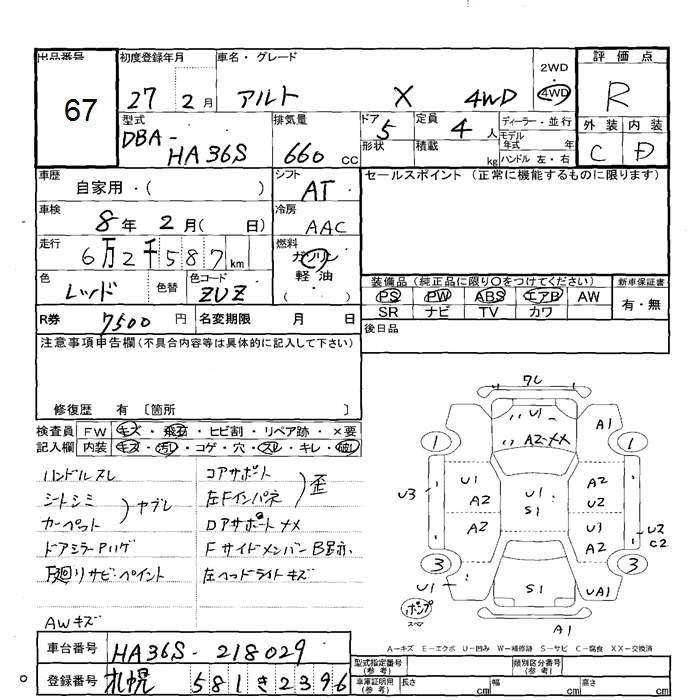 出品番号 初度登録年月 車名・グレード 2WD・4WD 評価点
67 27年 2月 アルト X 4WD R
型式 排気量 ドア 定員 ディーラー・並行 外装 内装
DBA-HA36S 660cc 5 4人 モデル年式 年 C D
形状 積載 kg ハンドル 左・右
車歴 シフト セールスポイント(正常に機能するものに限ります)
自家用・( ) AT
車検 冷房
8年 2月( 日) AAC
走行 燃料
6万2千587km ガソリン
色 色替 色コード 軽油
レッド ZUZ ( )
装備品(純正品に限り○をつけてください) 新車保証書
PS PW ABS エアB AW 有・無
SR ナビ TV カワ
R券 7500円 名変期限 月 日 後日品
注意事項申告欄(不具合内容等は具体的に記入して下さい)
修復歴 有〔箇所 〕
検査員 FW キズ・飛石・ヒビ割・リペア跡・×要
記入欄 内装 キズ・汚れ・コゲ・穴・スレ・キレ・破れ
ハンドルスレ コアサポート
シートシミ 左Fインパネ 歪
カーペット ヤブレ Dアサポートナメ
ドアミラーAワレ FサイドメンバーB
下廻りサビ・ペイント 左ヘッドライトキズ
AWキズ
ワレ
U1
A2-XX
A1
1 1
U3 U1 A2 U1 S1 A2 U2
A2 U3 A2 U2 C2
3 3
U1 S1 UA1
A1
A-キズ E-エクボ U-凹み W-補修跡 S-サビ C-腐食 XX-交換済
車台番号 HA36S-218029
登録番号 札幌 581 き 2396
型式指定番号(参考) 類別区分番号(参考)
車庫証明用(参考) 長さ cm 幅 cm 高さ cm